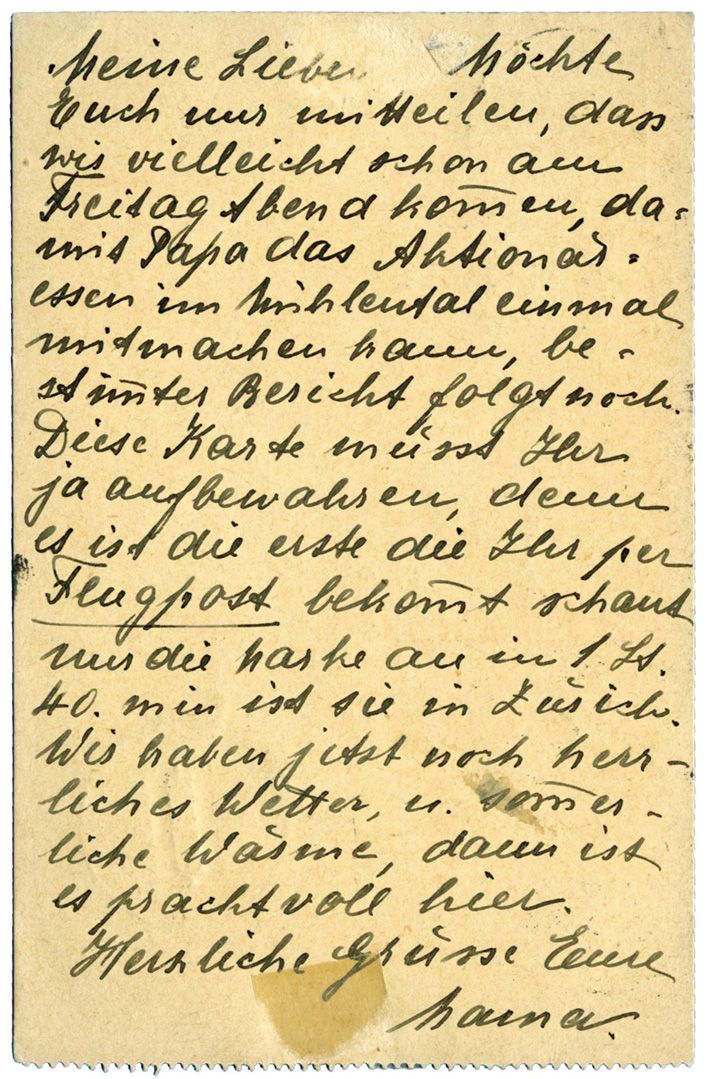 Meine Lieben Möchte
Euch nur mitteilen, dass
wir vielleicht schon am
Freitag Abend kom̄en, da=
mit Papa das Aktionär=
essen im Mühlental einmal
mitmachen kann, be-
stim̄ter Bericht folgt noch.
Diese Karte müsst Ihr
ja aufbewahren, denn
es ist die erste die Ihr per
Flugpost bekom̄t schaut
nur die Marke an in 1 St.
40. min ist sie in Zürich.
Wir haben jetzt noch herr-
liches Wetter, u. som̄er-
liche Wärme, dann ist
es prachtvoll hier.
Herzliche Grüsse Eure
Mama.